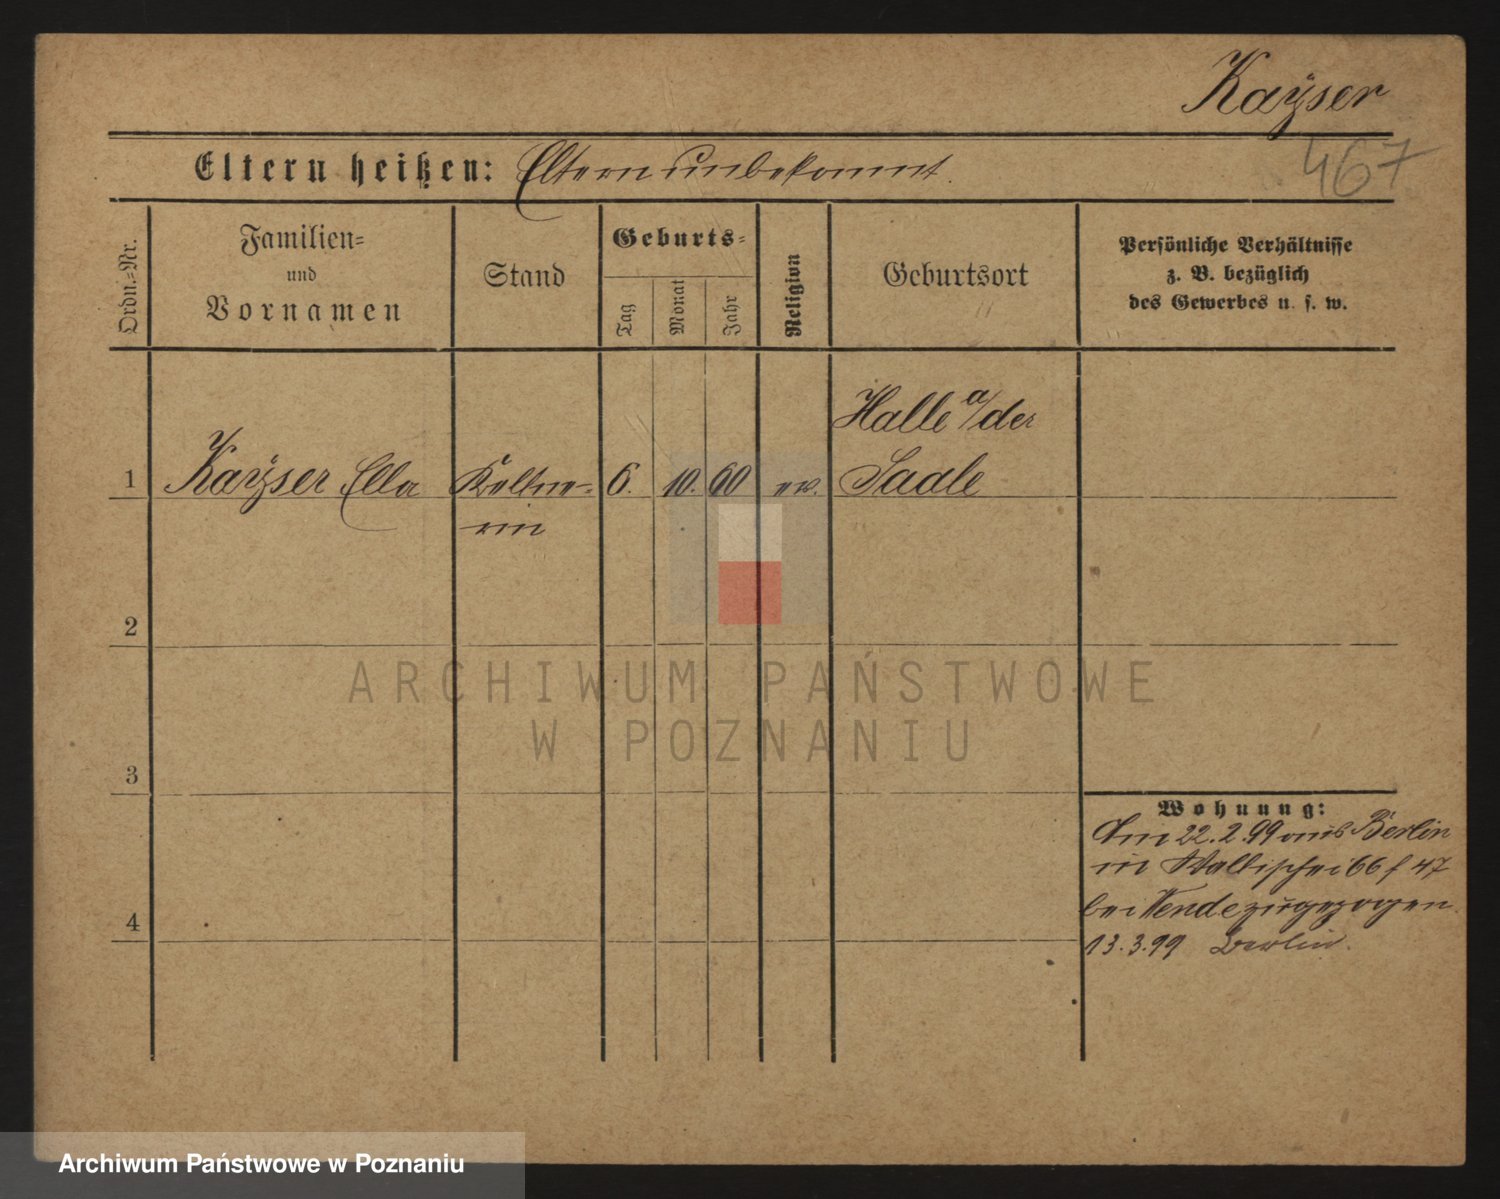 Kaÿser
467
Eltern heißen: Eltern unbekannt.
Ordn.=Nr.
Familien=
und
Vornamen
Stand
Geburts=
Tag
Monat
Jahr
Religion
Geburtsort
Persönliche Verhältnisse
z. B. bezüglich
des Gewerbes u. s. w.
1
Kaÿser Ella
Kellne-
rin
6.
10.
60
ev.
Halle a/der
Saale
2
3
4
Wohnung:
Am 22.2.99 aus Berlin
in Wallischei 66 f 47
bei Wende zugezogen.
13.3.99 Berlin.
ARCHIWUM PAŃSTWOWE
W POZNANIU
Archiwum Państwowe w Poznaniu